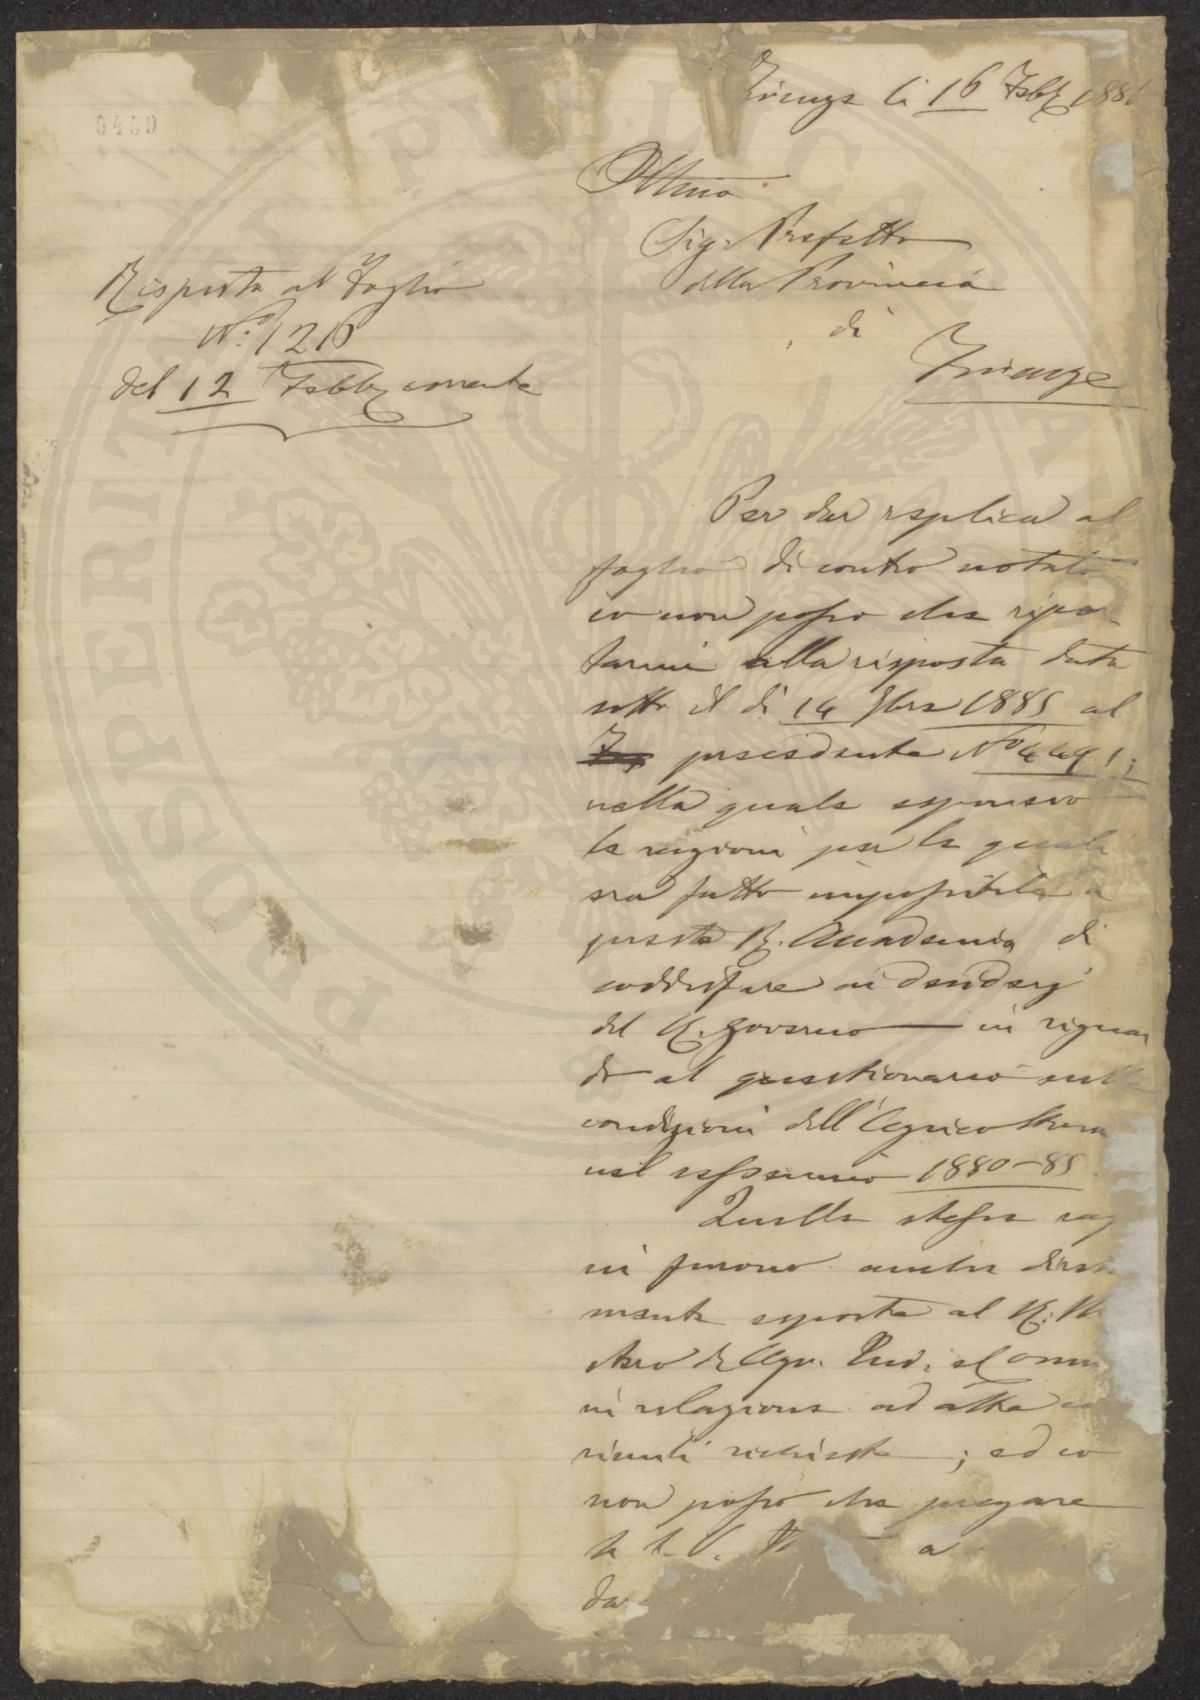 Firenze li 16 Febb 1886
6409
Illmo
Sig. Prefetto
della Provincia
di
Firenze
Risposta al Foglio
No: 1216
del 12 Febb corrente
Per dar replica al
foglio di contro notato
io non posso che ripor-
tarmi alla risposta data
sotto il di 14 9bre 1885 al
precedente No 4491;
nella quale esponevo
le ragioni per le quali
era fatto impossibile a
questa R. Accademia di
soddisfare ai desiderj
del R. Governo — in riguar
do al questionario sulle
condizioni dell'Agricoltura
nel sessennio 1880-85
Quelle stesse rag
ni furono anche diret
mente esposte al R. Mi
stero di Agr. Ind. e Comm
in relazione ad altre
richieste; ed io
non posso che pregare
la
da
PROSPERITATI PUBLICAE A